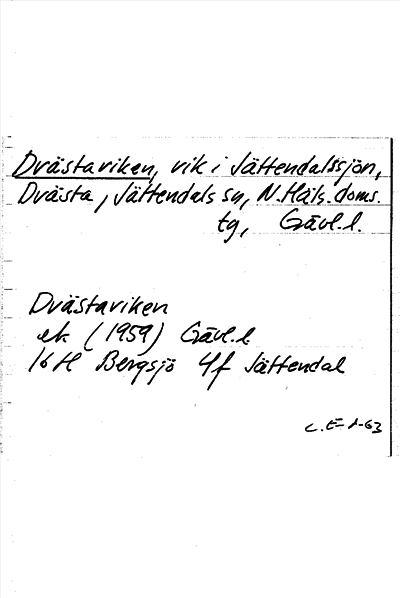 Drästaviken, vik i Jättendalssjön,
Drästa, Jättendals sn, N. Häls. doms.
tg, Gävl. l.
Drästaviken
ek (1959) Gävl. l
16 H Bergsjö 4f Jättendal
C. E-n-63